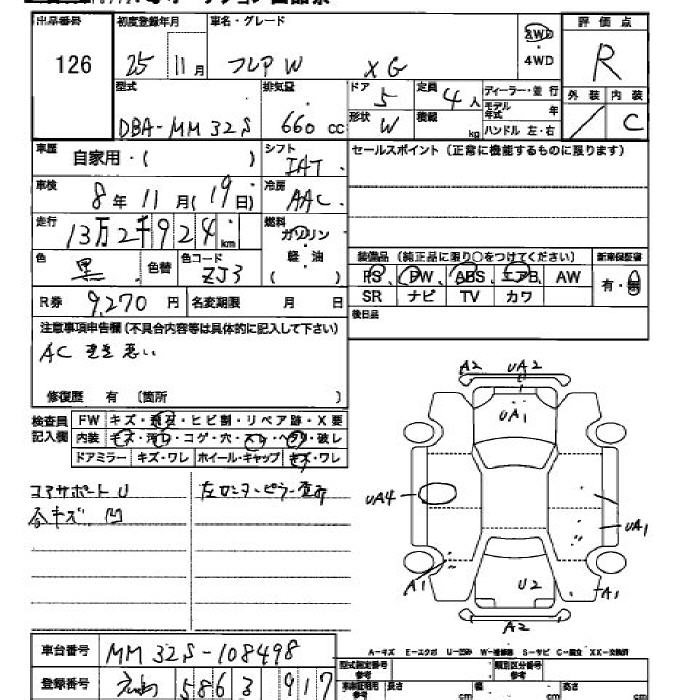 出品番号 初度登録年月 車名・グレード 2WD ・ 4WD 評価点
126 25 11月 フレア W XG R
型式 排気量 ドア 5 定員 4人 ディーラー・並行 外装 内装
DBA-MM32S 660cc 形状 W 積載 kg モデル年式 年 ハンドル 左・右 C
車歴 自家用・( ) シフト IAT セールスポイント (正常に機能するものに限ります)
車検 8年11月(19日) 冷房 AAC
走行 13万2千924km 燃料 ガソリン・軽油 ( )
色 黒 色替 色コード ZJ3 装備品 (純正品に限り○をつけてください) 新車保証書
PS PW ABS エアB AW 有・無
R券 9,270円 名変期限 月 日 SR ナビ TV カワ
後日品
注意事項申告欄(不具合内容等は具体的に記入して下さい)
AC 悪い
修復歴 有 〔箇所 〕
A2 UA2
検査員記入欄 FW キズ・飛石・ヒビ割・リペア跡・X要
UA1
内装 キズ・汚れ・コゲ・穴・スレ・ヘタリ・破レ
ドアミラー キズ・ワレ ホイール・キャップ キズ・ワレ
コアサポート U 左センターピラー
各キズ 凹
UA4 UA1
A1 U2 A1
A2
車台番号 MM32S-108498
A-キズ E-エクボ U-凹み W-補修跡 S-サビ C-腐食 XX-交換済
型式指定番号 参考 類別区分番号 参考
登録番号 586 3 917
長さ cm 幅 cm 高さ cm